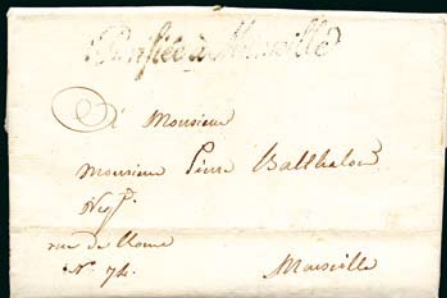 Purifiée à Marseille
À Monsieur
Monsieur Pierre Balthalon
Negt.
rue de Rome
N.° 74.
Marseille